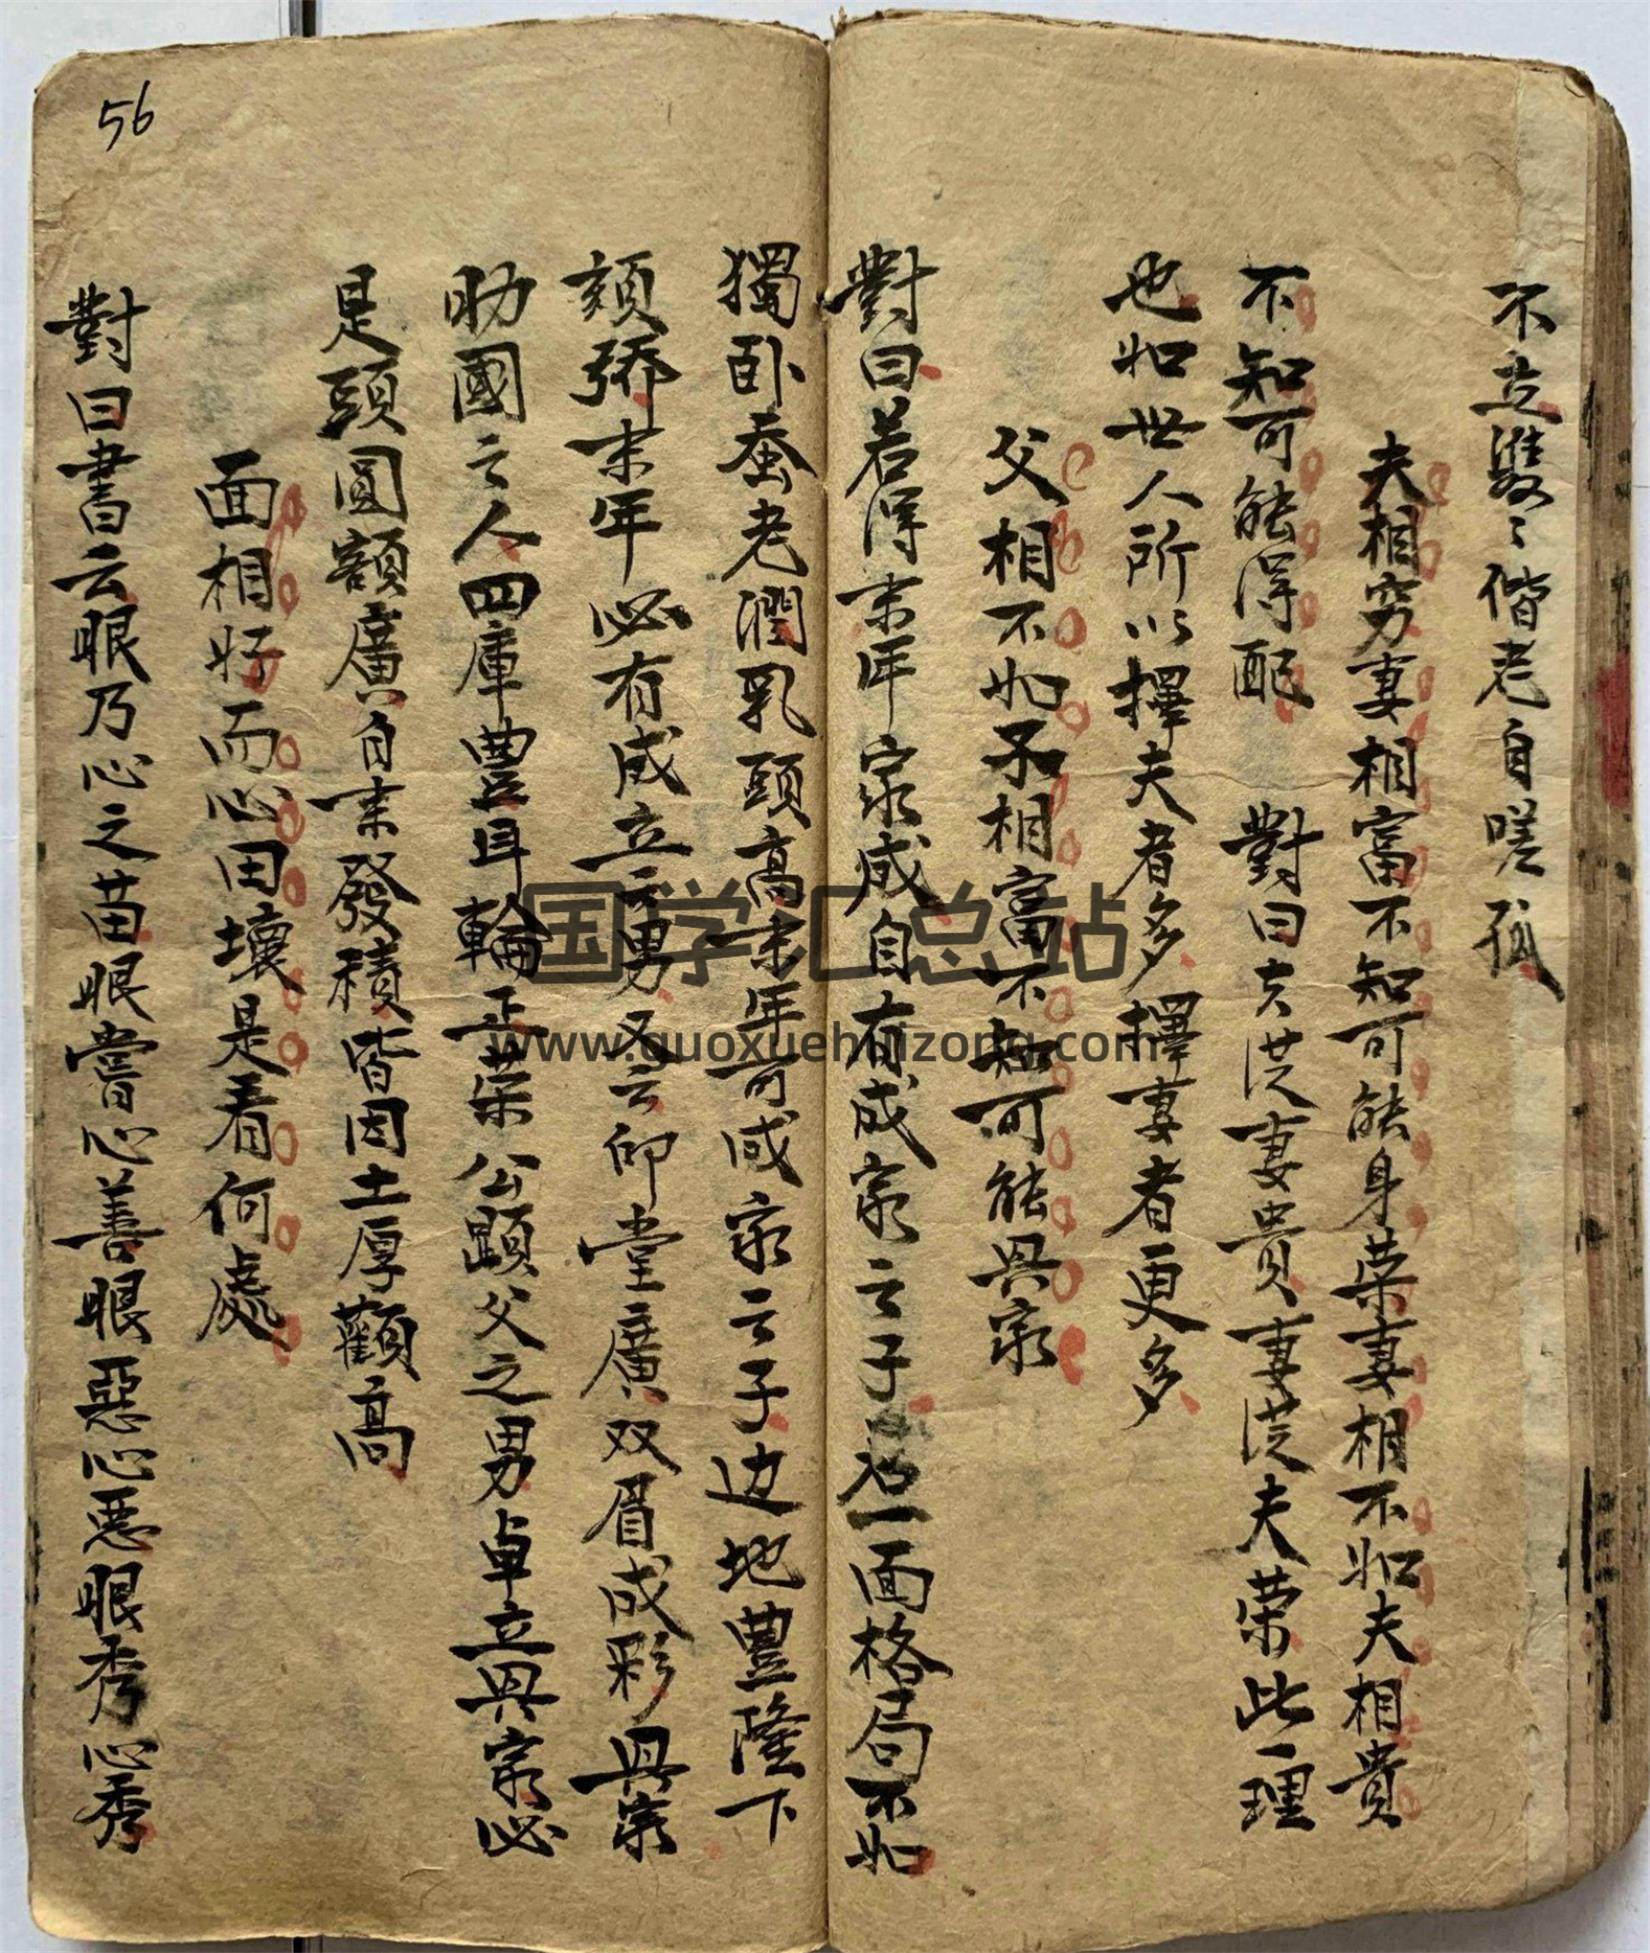 不立雙々偕老自嗟孤
夫相窮妻相富不知可能身荣妻相不如夫相貴
不知可能得配 對曰夫從妻貴妻從夫荣此一理
也如世人所以擇夫者多擇妻者更多
父相不如子相富不知可能興家
對曰若得末年家成自有成家云子乃一面格局不如
獨卧蚕老潤乳頭高末年可成家云子边地豊隆下
頦末年必有成立云男又云印堂廣双眉成彩興家
助國云人四庫豊耳輪正荣公顕父之男卓立興家必
是頭圓額廣自来發積皆因土厚顴高
面相好而心田壞是看何處
對曰書云眼乃心之苗眼善心善眼惡心惡眼秀心秀
56
国学汇总站
www.guoxuehuizong.com